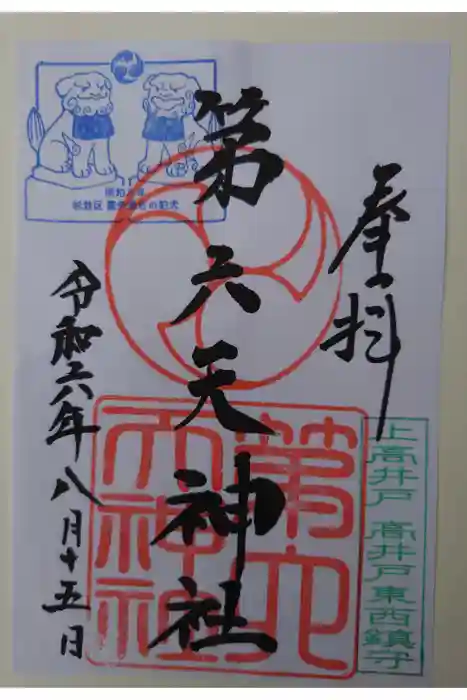 奉拝
第六天神社
令和六年八月十五日
上高井戸 高井戸東西鎮守
第六天神社
杉並区